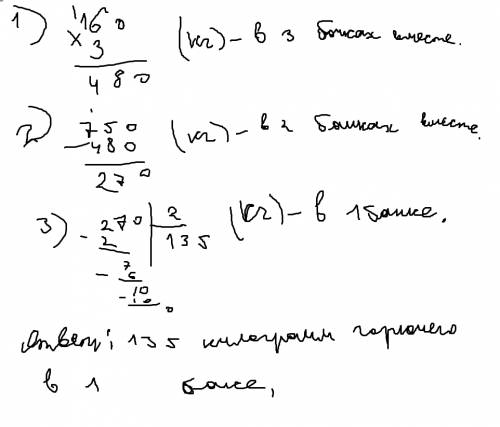 1) 160
× 3
480 (кг) - в 3 баках вместе.
2) 750
- 480
270 (кг) - в 2 баках вместе.
3) - 270 | 2
2 | 135 (кг) - в 1 банке.
- 7
6
- 10
10
0
Ответ: 135 килограмм горючего
в 1 баке,